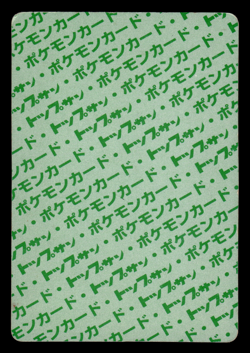 トップサン・ポケモン
ポケモンカード・トップ
モンカード・トップサン・
・トップサン・ポケモンカード
トップサン・ポケモンカード・
ポケモンカード・トップサン
ポケモンカード・トップサン・
ンカード・トップサン・ポケモン
・トップサン・ポケモンカード
トップサン・ポケモンカード・
・ポケモンカード・トップサン
ポケモンカード・トップサン・
カード・トップサン・ポケモン
・トップサン・ポケモンカード
トップサン・ポケモンカード
・ポケモンカード・
ポケモンカード・トップサン
カード・トップサン